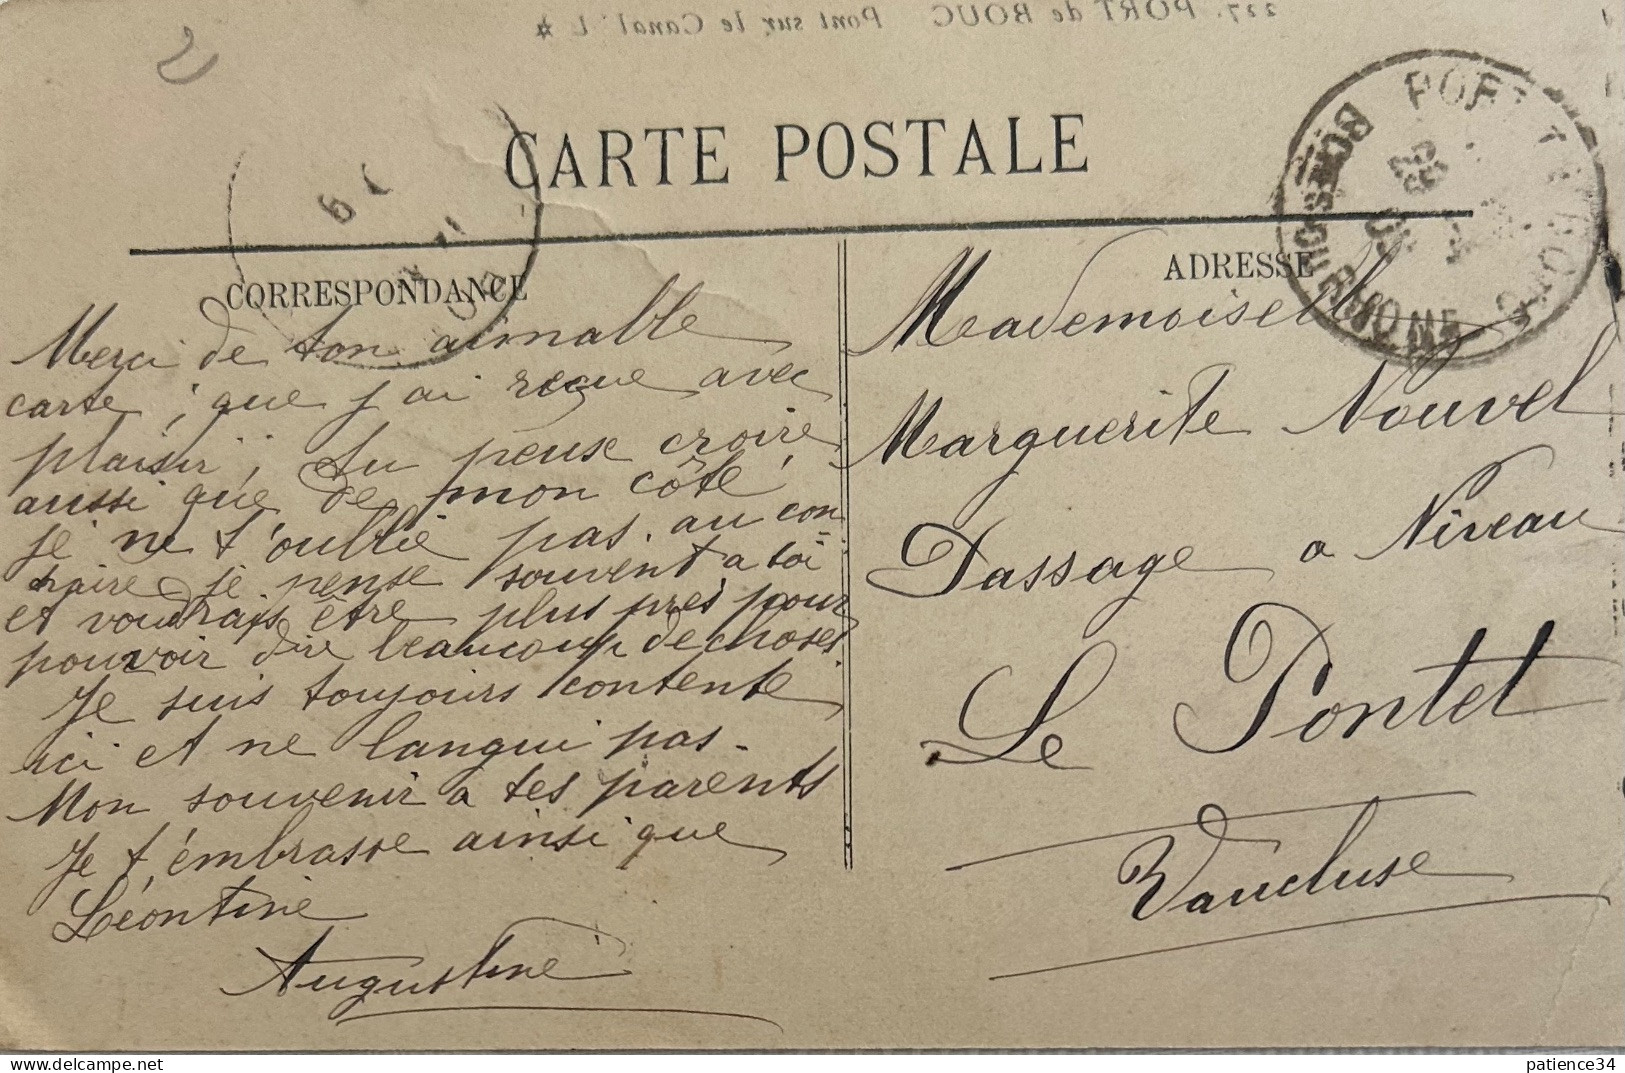 227. PORT de BOUC Pont sur le Canal L
2
CARTE POSTALE
CORRESPONDANCE
ADRESSE
PORT
BOUC
BOUCHES DU RHONE
Merci de ton aimable
carte, que j'ai reçue avec
plaisir; tu peuse croire,
aussi que de mon côté
je ne t'oublie pas. au con
traire je pense souvent a toi
et voudrais être plus près pour
pouvoir dire beaucoup de choses
Je suis toujours contente
ici et ne langui pas.
Mon souvenir a tes parents
Je t'embrasse ainsi que
Léontine
Augustine
Mademoiselle
Marguerite Nouvel
Passage a Niveau
Le Pontet
Vaucluse
patience34